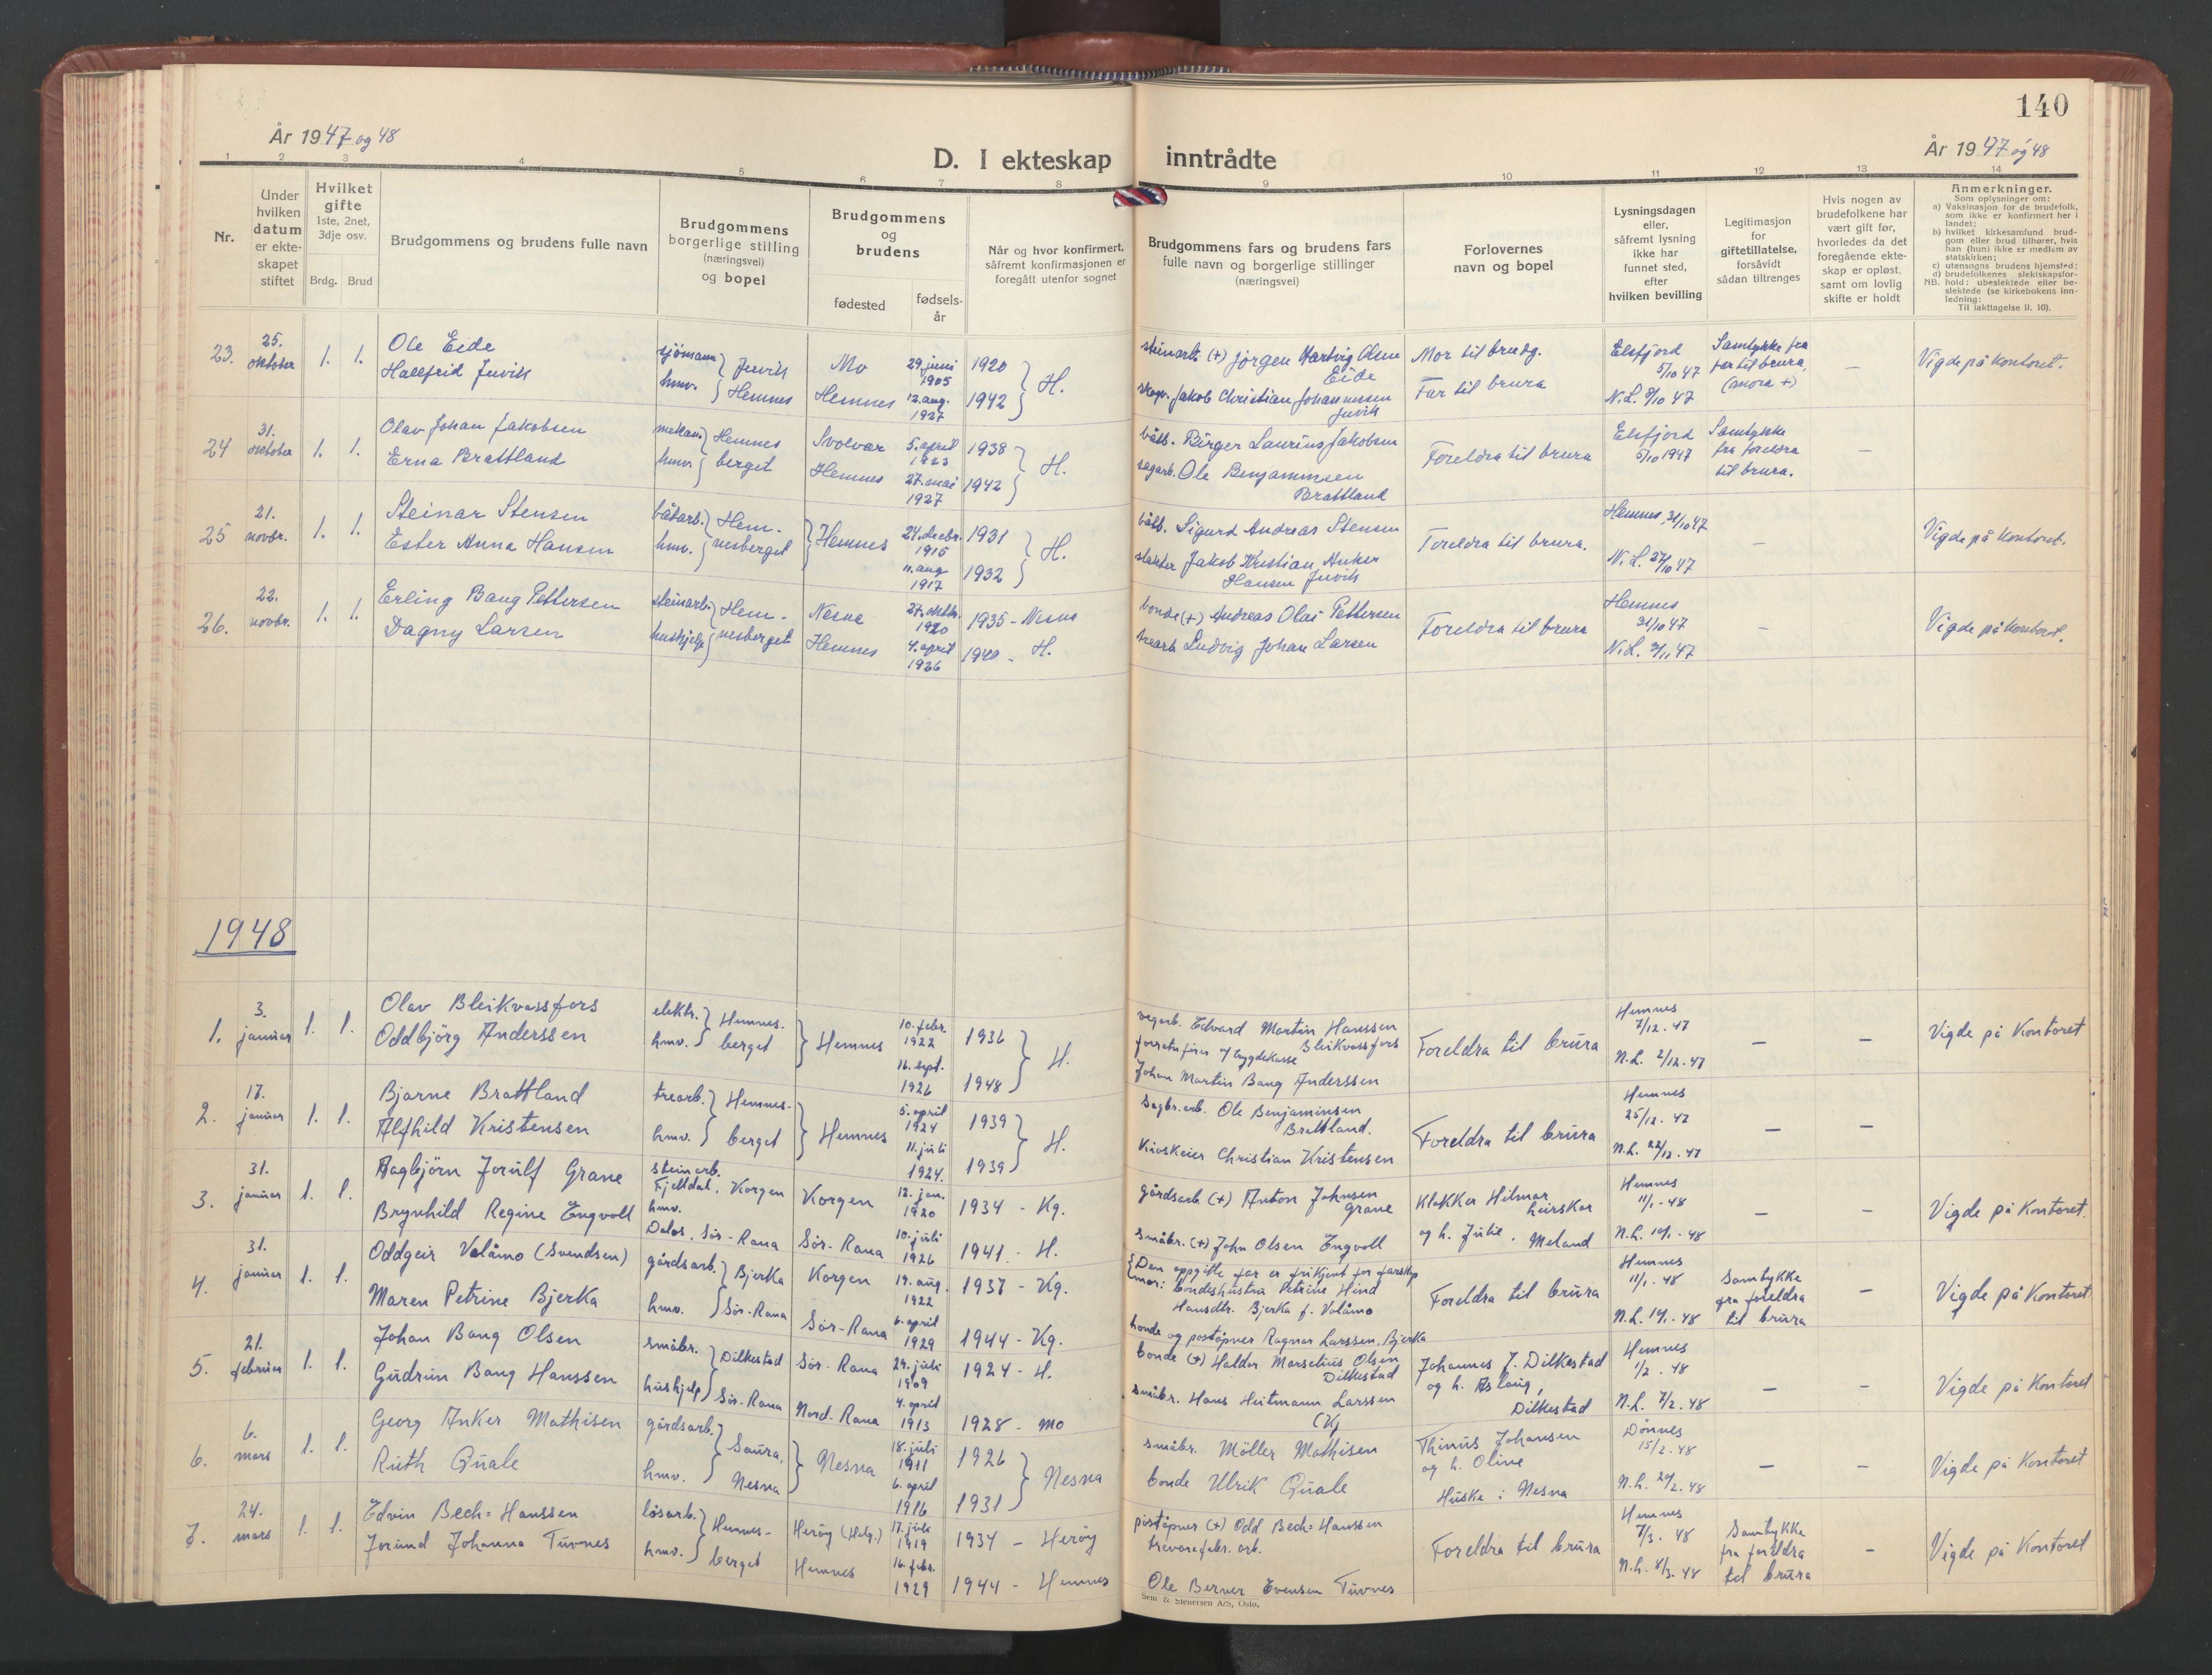 140
År 1947 og 48
D. I ekteskap inntrådte
År 1947 og 48
1 2 3 4 5 6 7 8 9 10 11 12 13 14
Nr.
Under hvilken datum er ekte-skapet stiftet
Hvilket gifte 1ste, 2net, 3dje osv.
Brdg. Brud
Brudgommens og brudens fulle navn
Brudgommens borgerlige stilling (næringsvei) og bopel
Brudgommens og brudens
fødested
fødsels-år
Når og hvor konfirmert, såfremt konfirmasjonen er foregått utenfor sognet
Brudgommens fars og brudens fars fulle navn og borgerlige stillinger (næringsvei)
Forlovernes navn og bopel
Lysningsdagen eller, såfremt lysning ikke har funnet sted, efter hvilken bevilling
Legitimasjon for giftetillatelse, forsåvidt sådan tiltrenges
Hvis nogen av brudefolkene har vært gift før, hvorledes da det foregående ekte-skap er opløst, samt om lovlig skifte er holdt
Anmerkninger.
Som oplysninger om:
a) Vaksinasjon for de brudefolk, som ikke er konfirmert her i landet;
b) hvilket kirkesamfund brud-gom eller brud tilhører, hvis han (hun) ikke er medlem av statskirken;
c) utensogns brudens hjemsted;
d) brudefolkenes slektskapsfor-hold: ubeslektede eller be-slektede (se kirkebokens inn-ledning:
NB.
Til iakttagelse II. 10).
23. 25. oktober 1. 1.
Ole Eide
Hallfrid Juvik
sjömann hmv. } Juvik Hemnes
Mo 29. juni 1905 1920
Hemnes 12. aug. 1927 1942 } H.
steinarb. (+) Jörgen Hartvig Olsen Eide
Jakob Christian Johannessen Juvik
Mor til brudg.
Far til brura
Elsfjord 5/10 47
Samtykke fra far til brura, (mora +)
–
Vigde på Kontoret.
24 31. oktober 1. 1.
Olav Johan Jakobsen
Erna Brattland
mekan. hmv. } Hemnes berget
Svolvær 5. april 1923 1938
Hemnes 27. mai 1927 1942 } H.
båtb. Birger Laurius Jakobsen
sagarb. Ole Benjaminsen Brattland
Foreldra til brura
Elsfjord 5/10 1947
Samtykke fra foreldra til brura.
–
25 21. novbr. 1. 1.
Steinar Stensen
Ester Anna Hansen
båtarb. hmv. } Hem-nesberget
} Hemnes 24. decbr. 1916 1931
11. aug 1917 1932 } H.
båtb. Sigurd Andreas Stensen
slakter Jakob Kristian Anker Hansen Juvik
Foreldra til brura.
Hemnes 31/10 47
N.L. 27/10 47
–
Vigde på Kontoret.
26. 22. novbr. 1. 1.
Erling Bang Pettersen
Dagny Larsen
steinarb. hushjelp } Hem-nesberget
Nesna 27. oktbr. 1920 1935 - Nesna
Hemnes 4. april 1926 1940 - H.
bonde (+) Andreas Olai Pettersen
trearb. Ludvig Johan Larsen
Foreldra til brura
Hemnes 31/10 47
–
Vigde på Kontoret.
1948
1. 3. januar 1. 1.
Olav Bleikvassfors
Oddbjörg Anderssen
elektr. hmv. } Hemnes-berget
} Hemnes 10. febr. 1922 1936
16. sept. 1926 1948 } H.
vegarb. Edvard Martin Hanssen Bleikvassfors
Johan Martin Bang Anderssen
Foreldra til brura
Hemnes 7/12.47
N.L. 2/12.47
– –
Vigde på Kontoret
2. 17. januar 1. 1.
Bjarne Brattland
Alfhild Kristensen
trearb. hmv. } Hemnes-berget
} Hemnes 5. april 1924 1939
11. juli 1924. 1939 } H.
Sagbr.arb. Ole Benjaminsen Brattland.
Kioskeier Christian Kristensen
Foreldra til brura
Hemnes 25/12.47
N.L. 22/12.47
– –
3. 31. januar 1. 1.
Dagbjörn Jorulf Grane
Brynhild Regine Engvoll
steinarb. Fjelldal, Korgen
hmv. Dalos, Sör-Rana
Korgen 12. jan. 1920 1934 - Kg.
Sör-Rana 10. juli 1926 1941 - H.
gårdsarb. (+) Anton Johnsen Grane
småbr. (+) John Olsen Engvoll
Klokker Hilmar Leirskar
og h. Julie, Meland
Hemnes 11/1-48
– –
Vigde på Kontoret.
4. 31. januar 1. 1.
Oddgeir Volåmo (Svendsen)
Maren Petrine Bjerka
gårdsarb. hmv. } Bjerka Sör-Rana
Korgen 19. aug. 1922 1937 - Kg.
Sör-Rana 6. april 1929 1944 - Kg.
{ Den oppgitte far er frikjent for farskap
mor: bondehustru Petrine Hind Hansdtr. Bjerka f. Volåmo
bonde og postöpner Ragnar Larssen, Bjerka
Foreldra til brura
Hemnes 11/1.48
Samtykke fra foreldra til brura
–
Vigde på Kontoret
5. 21. februar 1. 1.
Johan Bang Olsen
Gudrun Bang Hanssen
småbr. hushjelp } Dilkestad Sör-Rana
Sör-Rana 29. juli 1909 1924 - H.
Nord-Rana 4. april 1913 1928 - Mo
bonde (+) Haldor Marselius Olsen Dilkestad
småbr. Hans Heitmann Larssen
Johannes J. Dilkestad
og h. Aslaug, Dilkestad
Hemnes 1/2.48
N.L. 7/2.48
– –
Vigde på Kontoret
6. 6. mars 1. 1.
Georg Anker Mathisen
Ruth Quale
gårdsarb. hmv. } Saura, Nesna
} Nesna 18. juli 1911 1926
6. april 1916 1931 } Nesna
småbr. Möller Mathisen
bonde Ulrik Quale
Thinus Johansen
og h. Oline
Huske i Nesna
Dönnes 15/2.48
– –
Vigde på Kontoret
7. 24. mars 1. 1.
Edvin Bech=Hanssen
Jorund Johanna Tuvnes
lösarb. hmv. } Hemnes-berget
Heröy (Helg.) 17. juli 1919 1934 - Heröy
Hemnes 16. febr. 1929 1944 - Hemnes
postöpner (+) Odd Bech=Hanssen
trevarefabr. arb.
Ole Berner Evensen Tuvnes
Foreldra til brura
Hemnes 7/3.48
N.L. 8/3.48
Samtykke fra foreldra til brura
–
Vigde på Kontoret
Sem & Stenersen A/S, Oslo.